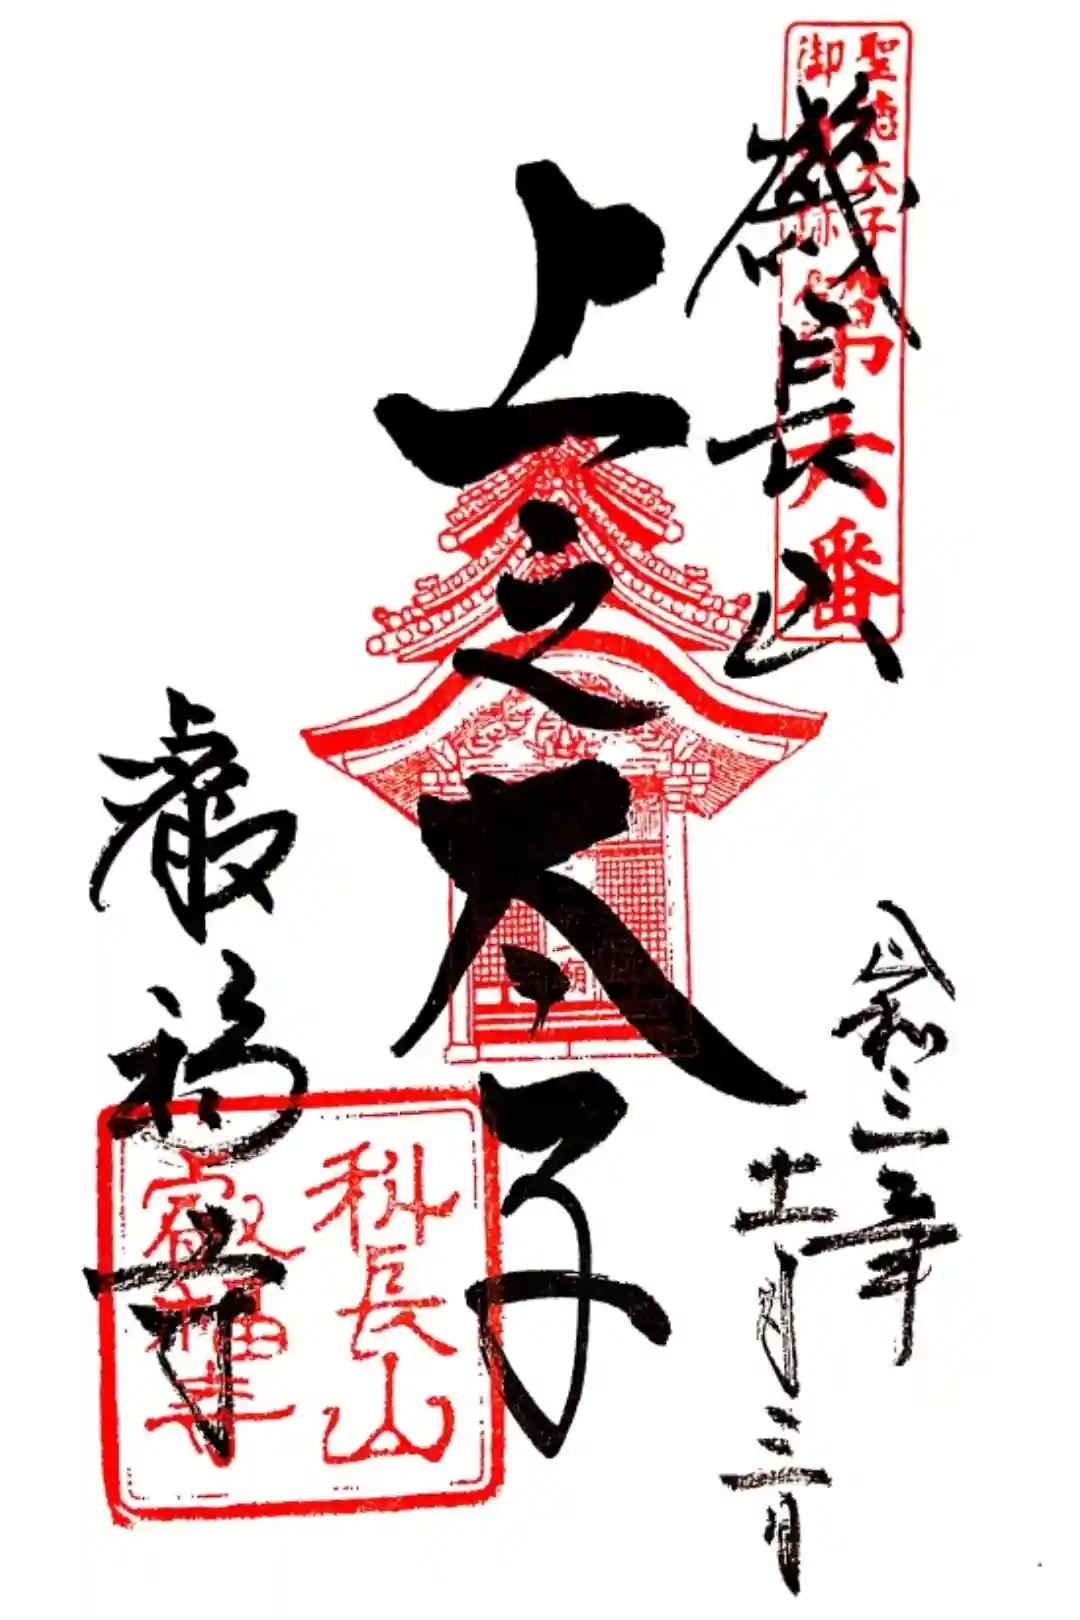 聖徳太子
御遺跡霊場
第八番
磯長山
上之太子
叡福寺
令和三年
十一月三日
科長山
叡福寺